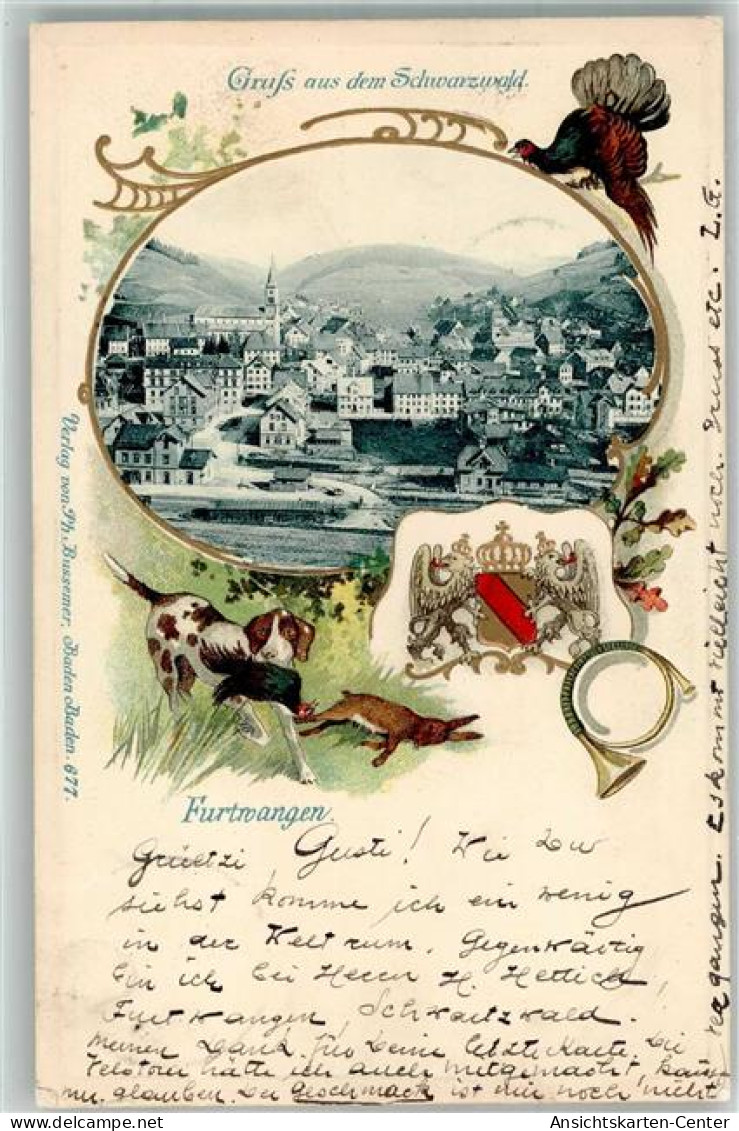 Gruß aus dem Schwarzwald.
Verlag von Ph. Bussemer, Baden Baden. 677.
Furtwangen.
Grüetzi Gusti! Wie Du
siehst komme ich ein wenig
in der Welt rum. Gegenwärtig
bin ich bei Herrn H. Hettich,
Furtwangen, Schwartzwald.
Meinen Dank für Deine letzte Karte. Die
Velotour hätte ich auch mitgemacht, kannst
mir glauben. Der Geschmack ist mir noch nicht
vergangen. Es kommt vielleicht noch. Gruss etc. L.G.
Ansichtskarten-Center